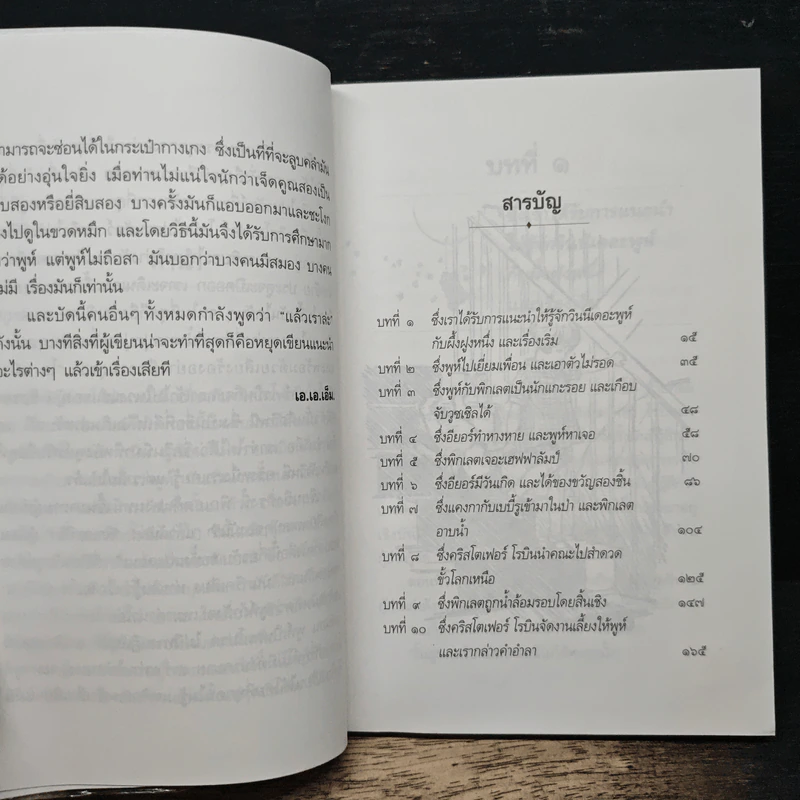 ามารถจะซ่อนได้ในกระเป๋ากางเกง ซึ่งเป็นที่ที่จะลูบคลำมัน
ด้อย่างอุ่นใจยิ่ง เมื่อท่านไม่แน่ใจนักว่าเจ็ดคูณสองเป็น
บสองหรือยี่สิบสอง บางครั้งมันก็แอบออกมาและชะโงก
งไปดูในขวดหมึก และโดยวิธีนี้มันจึงได้รับการศึกษามาก
ว่าพูห์ แต่พูห์ไม่ถือสา มันบอกว่าบางคนมีสมอง บางคน
ม่มี เรื่องมันก็เท่านั้น
และบัดนี้คนอื่นๆ ทั้งหมดกำลังพูดว่า "แล้วเราล่ะ"
ังนั้น บางทีสิ่งที่ผู้เขียนน่าจะทำที่สุดก็คือหยุดเขียนแนะนำ
อะไรต่างๆ แล้วเข้าเรื่องเสียที
เอ.เอ.เอ็ม.
สารบัญ
บทที่ ๑ ซึ่งเราได้รับการแนะนำให้รู้จักวินนีเดอะพูห์
กับผึ้งฝูงหนึ่ง และเรื่องเริ่ม ๑๕
บทที่ ๒ ซึ่งพูห์ไปเยี่ยมเพื่อน และเอาตัวไม่รอด ๓๕
บทที่ ๓ ซึ่งพูห์กับพิกเลตเป็นนักแกะรอย และเกือบ
จับวูซเซิลได้ ๔๘
บทที่ ๔ ซึ่งอียอร์ทำหางหาย และพูห์หาเจอ ๕๘
บทที่ ๕ ซึ่งพิกเลตเจอะเฮฟฟาลัมป์ ๗๐
บทที่ ๖ ซึ่งอียอร์มีวันเกิด และได้ของขวัญสองชิ้น ๘๖
บทที่ ๗ ซึ่งแคงกากับเบบี้รูเข้ามาในป่า และพิกเลต
อาบน้ำ ๑๐๔
บทที่ ๘ ซึ่งคริสโตเฟอร์ โรบินนำคณะไปสำดวด
ขั้วโลกเหนือ ๑๒๕
บทที่ ๙ ซึ่งพิกเลตถูกน้ำล้อมรอบโดยสิ้นเชิง ๑๔๗
บทที่ ๑๐ ซึ่งคริสโตเฟอร์ โรบินจัดงานเลี้ยงให้พูห์
และเรากล่าวคำอำลา ๑๖๕